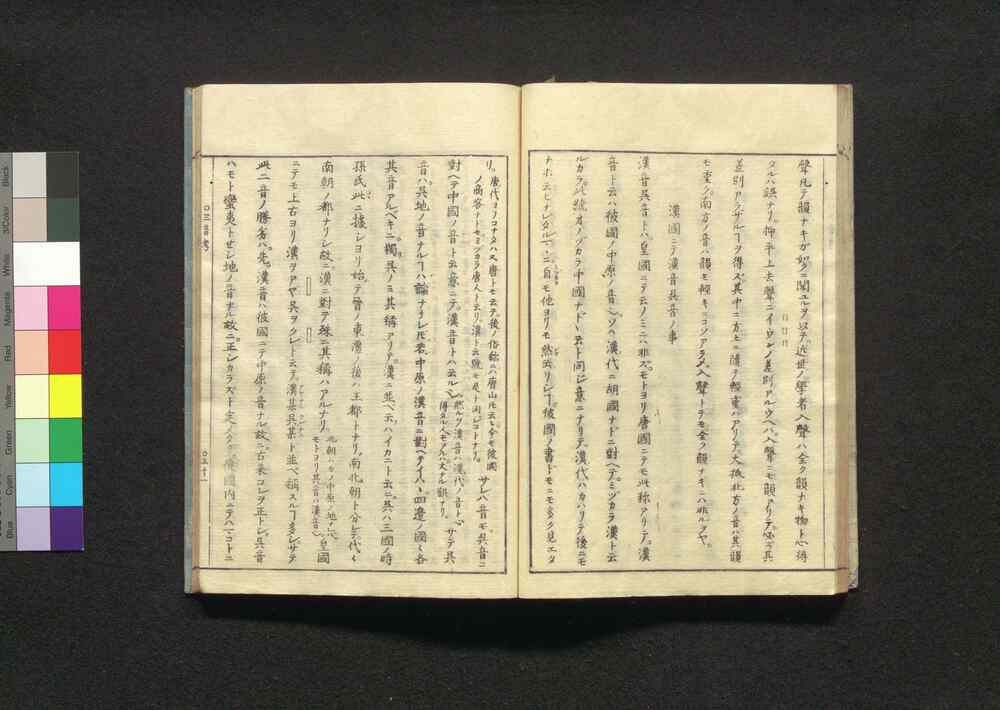 聲凡テ韻ナキガ如クニ聞ユルヲ以テ。近世ノ學者入聲ハ全ク韻ナキ物ト心得
タルハ誤ナリ。抑平上去聲ニイロ〳〵ノ差別アルウヘハ入聲ニモ韻アリテ。必ズ其
差別アラザルヿヲ得ズ。其中ニ方土ニ隨テ輕重ハアリテ。大抵北方ノ音ハ其韻
モ重ク。南方ノ音ハ韻モ輕キニコソアラメ入聲トテモ全ク韻ナキニハ非ルヲヤ。
漢國ニテ漢音呉音ノ事
漢音呉音ト云ハ。皇國ニテ云ノミニハ非ズ。モトヨリ唐國ニテモ此稱アリテ。漢
音ト云ハ彼國ノ中原ノ音也。ソハ漢代ニ胡國ナドニ對ヘテ。ミヅカラ漢ト云
ルカラ。此號オノヅカラ中國ナド丶云ト同ジ意ニナリテ。漢代ハカハリテ後ニモ
ナホ云ヒナレタルマ丶ニ。自モ他ヨリモ然云リシ也。彼國ノ書ドモニモ多ク見エタ
リ。唐代ヨリコナタハ又唐トモ云テ。後ノ俗
サレハ音モ。呉音ニ
對ヘテ中國ノ音ト云意ニテ。漢音トハ云ル也。
サテ呉
音ハ。呉地ノ音ナルヿハ論ナリシ。
中原ノ漢音ニ對ヘテイハヾ。四邊ノ國々各
其音アルベキニ。獨呉ノミ其稱アリテ。漢ニ並ベ云ハイカニト云ニ。呉ハ三國ノ時
孫氏此ニ據シヨリ始テ。晉ノ東遷ノ後ハ王都トナリ。南北朝ト分レテ。代々
南朝ノ都ナリシ故ニ。漢ニ對テ殊ニ其稱ハアルナリ。
皇國
ニテモ上古ヨリ漢ヲアヤ呉ヲクレト云テ。漢某呉某ト並ベ稱スルヿ多シ。サテ
此二音ノ勝劣ハ。先漢音ハ彼國ニテ中原ノ音ナル故ニ。古來コレヲ正トシ。呉音
ハモト蠻夷トセシ地ノ音ナル故ニ。正シカラズト定メタル